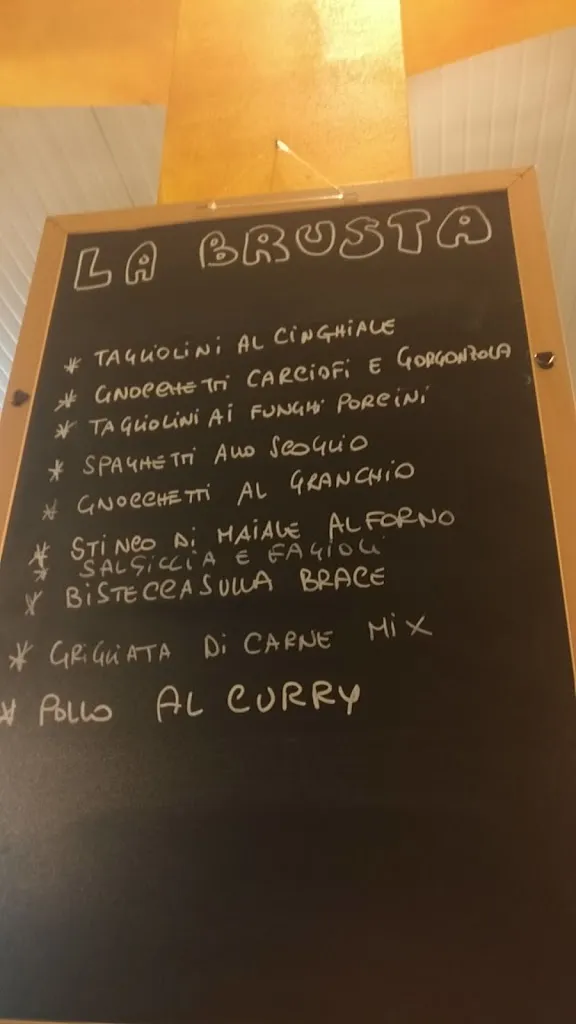 LA BRUSTA
* TAGLIOLINI AL CINGHIALE
* GNOCCHETTI CARCIOFI E GORGONZOLA
* TAGLIOLINI AI FUNGHI PORCINI
* SPAGHETTI ALLO SCOGLIO
* GNOCCHETTI AL GRANCHIO
* STINCO DI MAIALE AL FORNO
* SALSICCIA E FAGIOLI
* BISTECCA SULLA BRACE
* GRIGLIATA DI CARNE MIX
* POLLO AL CURRY